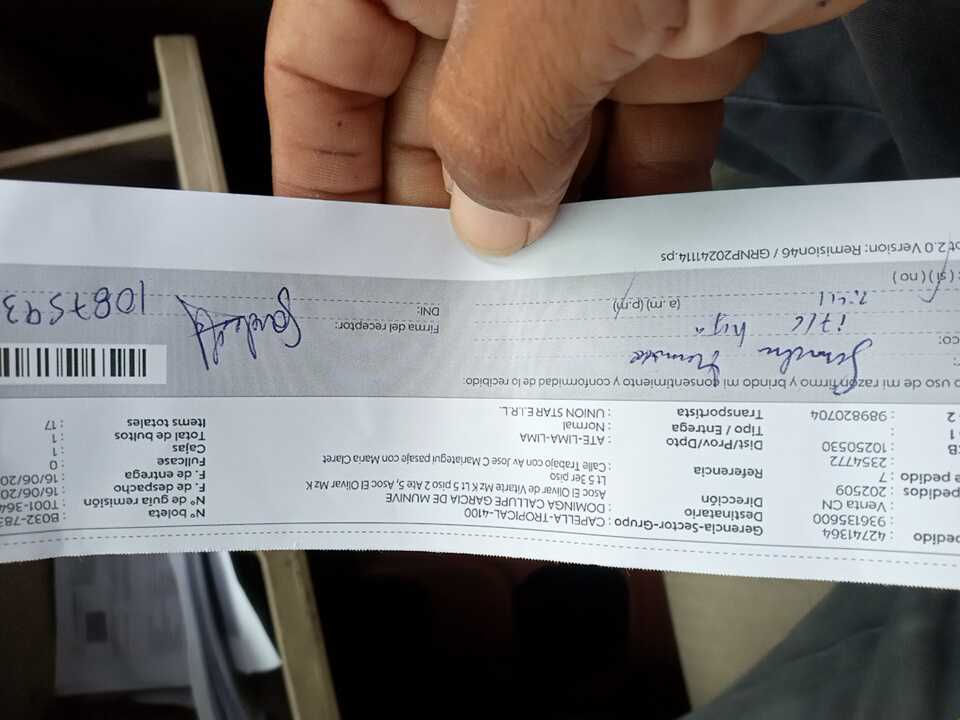 pedido : 42741364 Gerencia-Sector-Grupo : CAPELLA-TROPICAL-4100 Nº boleta : B032-783
: 936135600 Destinatario : DOMINGA CALLUPE GARCIA DE MUNIVE Nº de guía remisión : T001-364
: Venta CN Dirección : Asoc El Olivar de Vitarte Mz K Lt 5 piso 2 Ate 5, Asoc El Olivar Mz K F. de despacho : 16/06/20
pedidos : 202509 5 Lt 3er piso F. de entrega : 16/06/20
a pedido : 7 Referencia : Calle Trabajo con Av Jose C Mariategui con pasaje Maria Claret Fullcase : 0
: 23547772 Cajas : 1
CB : 10250530 Dist/Prov/Dpto : ATE-LIMA-LIMA Total de bultos : 1
1 Tipo / Entrega : Normal Items totales : 17
2 : 989820704 Transportista : UNION STAR E.I.R.L.
o uso de mi razón firmo y brindo mi consentimiento y conformidad de lo recibido:
co: hija
(a.m) (p.m)
Firma del receptor:
DNI: 1087593
: ( sí ) ( no )
ot 2.0 Version: Remision46 / GRNP202241114.ps